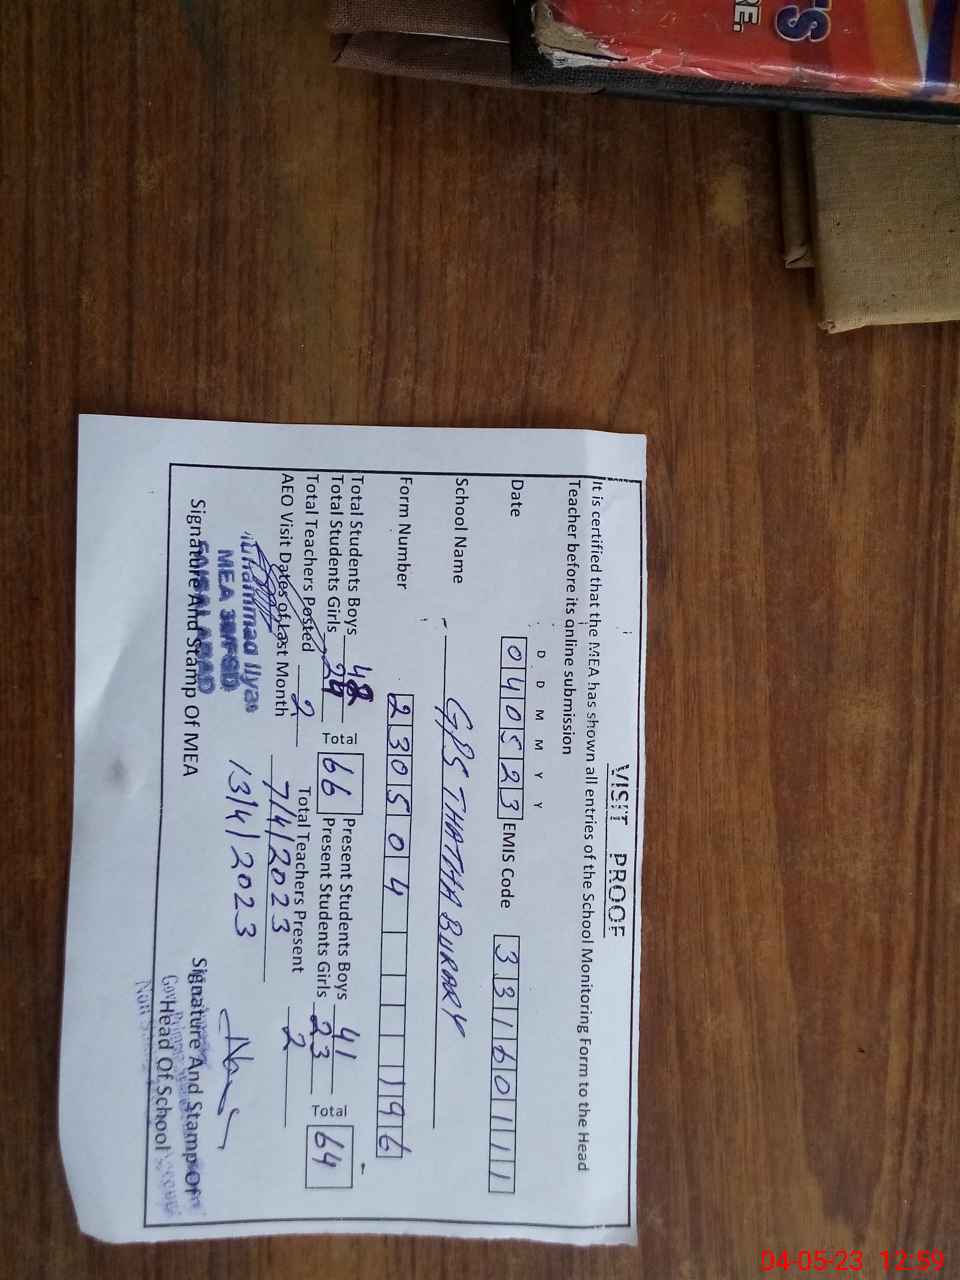 VISIT PROOF
It is certified that the MEA has shown all entries of the School Monitoring Form to the Head
Teacher before its online submission
D D M M Y Y
Date 040523 EMIS Code 33160111
School Name GPS THATHA BURARY
Form Number 230504 196
Total Students Boys 42 Total 66 Present Students Boys 41 Total 64
Total Students Girls 24 Present Students Girls 23
Total Teachers Posted 2 Total Teachers Present 2
AEO Visit Dates of Last Month 7/4/2023
13/4/2023
Muhammad Ilyas
MEA
FAISALABAD
Signature And Stamp Of MEA
Signature And Stamp Of
Head Of School
'S
RE.
04-05-23 12:59